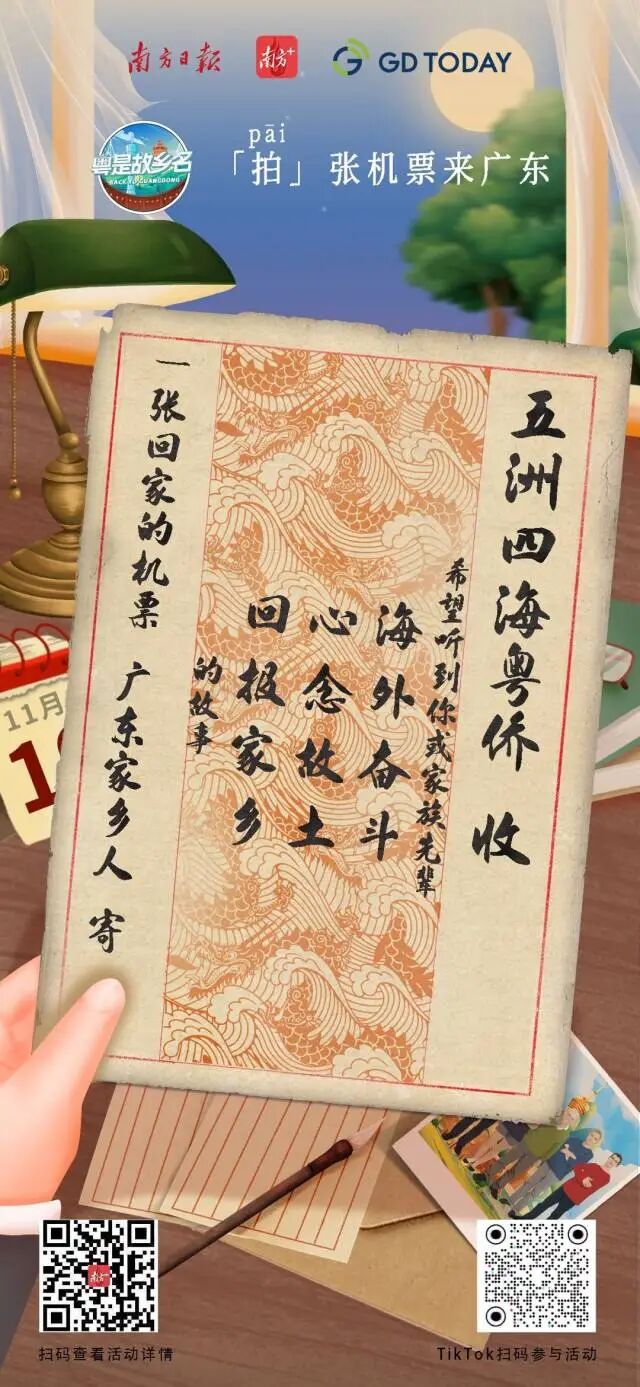 南方日報
南方+
GD TODAY
粤是故乡名
BACK TO GUANGDONG
pāi
「拍」张机票来广东
五洲四海粤侨 收
希望听到你或家族先辈
海外奋斗
心念故土
回报家乡
的故事
一张回家的机票 广东家乡人 寄
11月
南方+
扫码查看活动详情
TikTok扫码参与活动